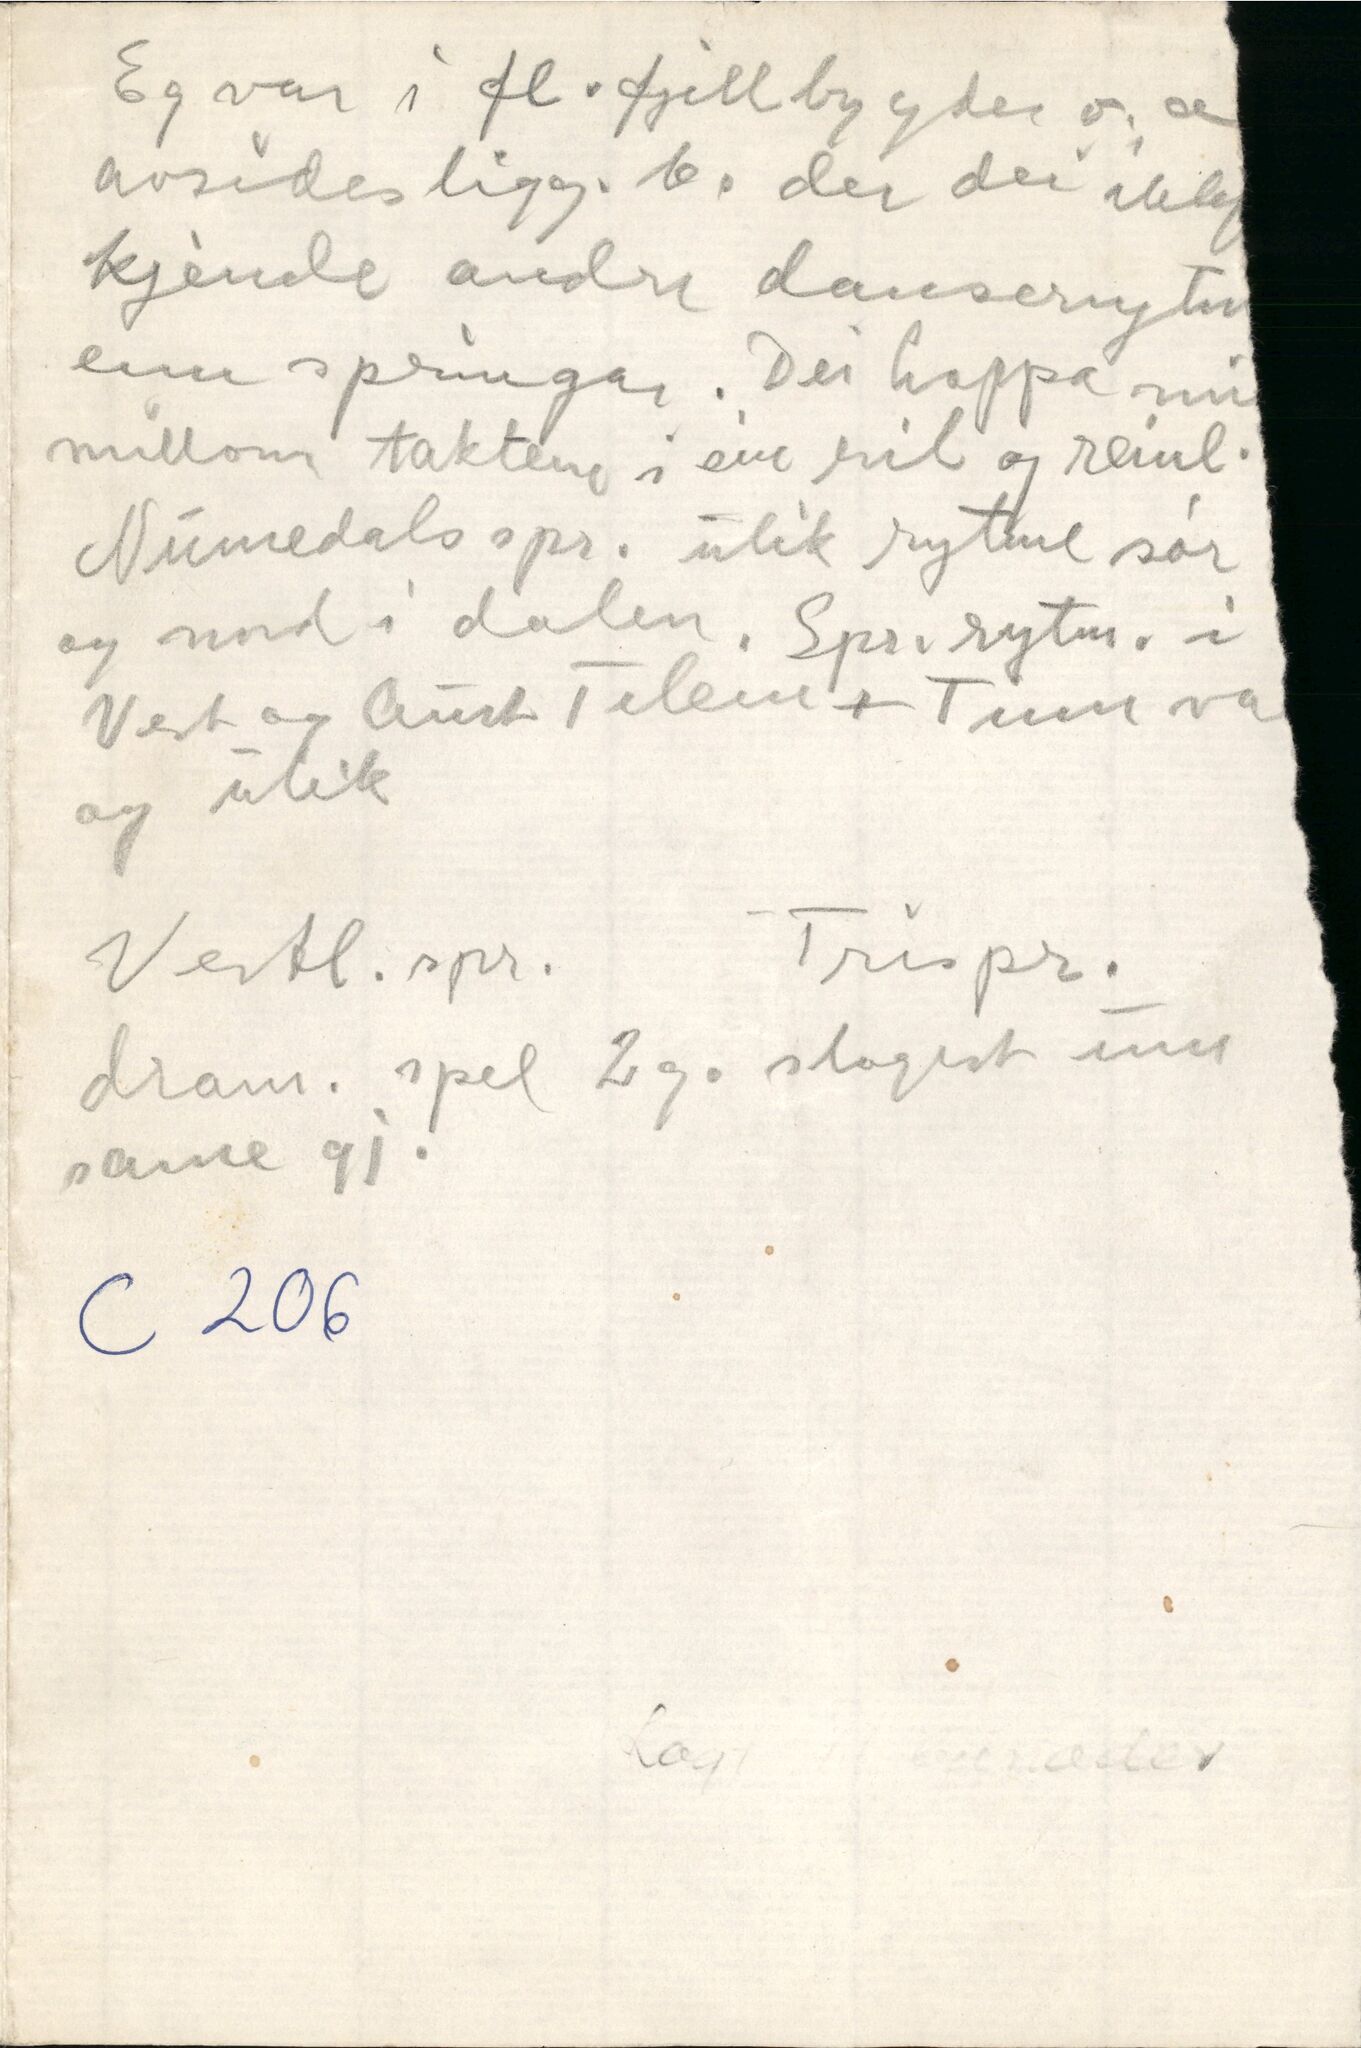 Eg var i fl. fjellbygder o. a
avsides ligg. b. der dei ikkj
kjende andre dansarytm
enn springar. Dei hoppa mi
millom taktene i ein ril og reinl.
Numedalsspr. ulik rytme sør
og nord i dalen. Spr.rytm. i
Vest og Aust Telem + Tinn va
og ulik
Vestl. spr. Trispr.
dram. spel 2 g. slogest um
same gj.
C 206